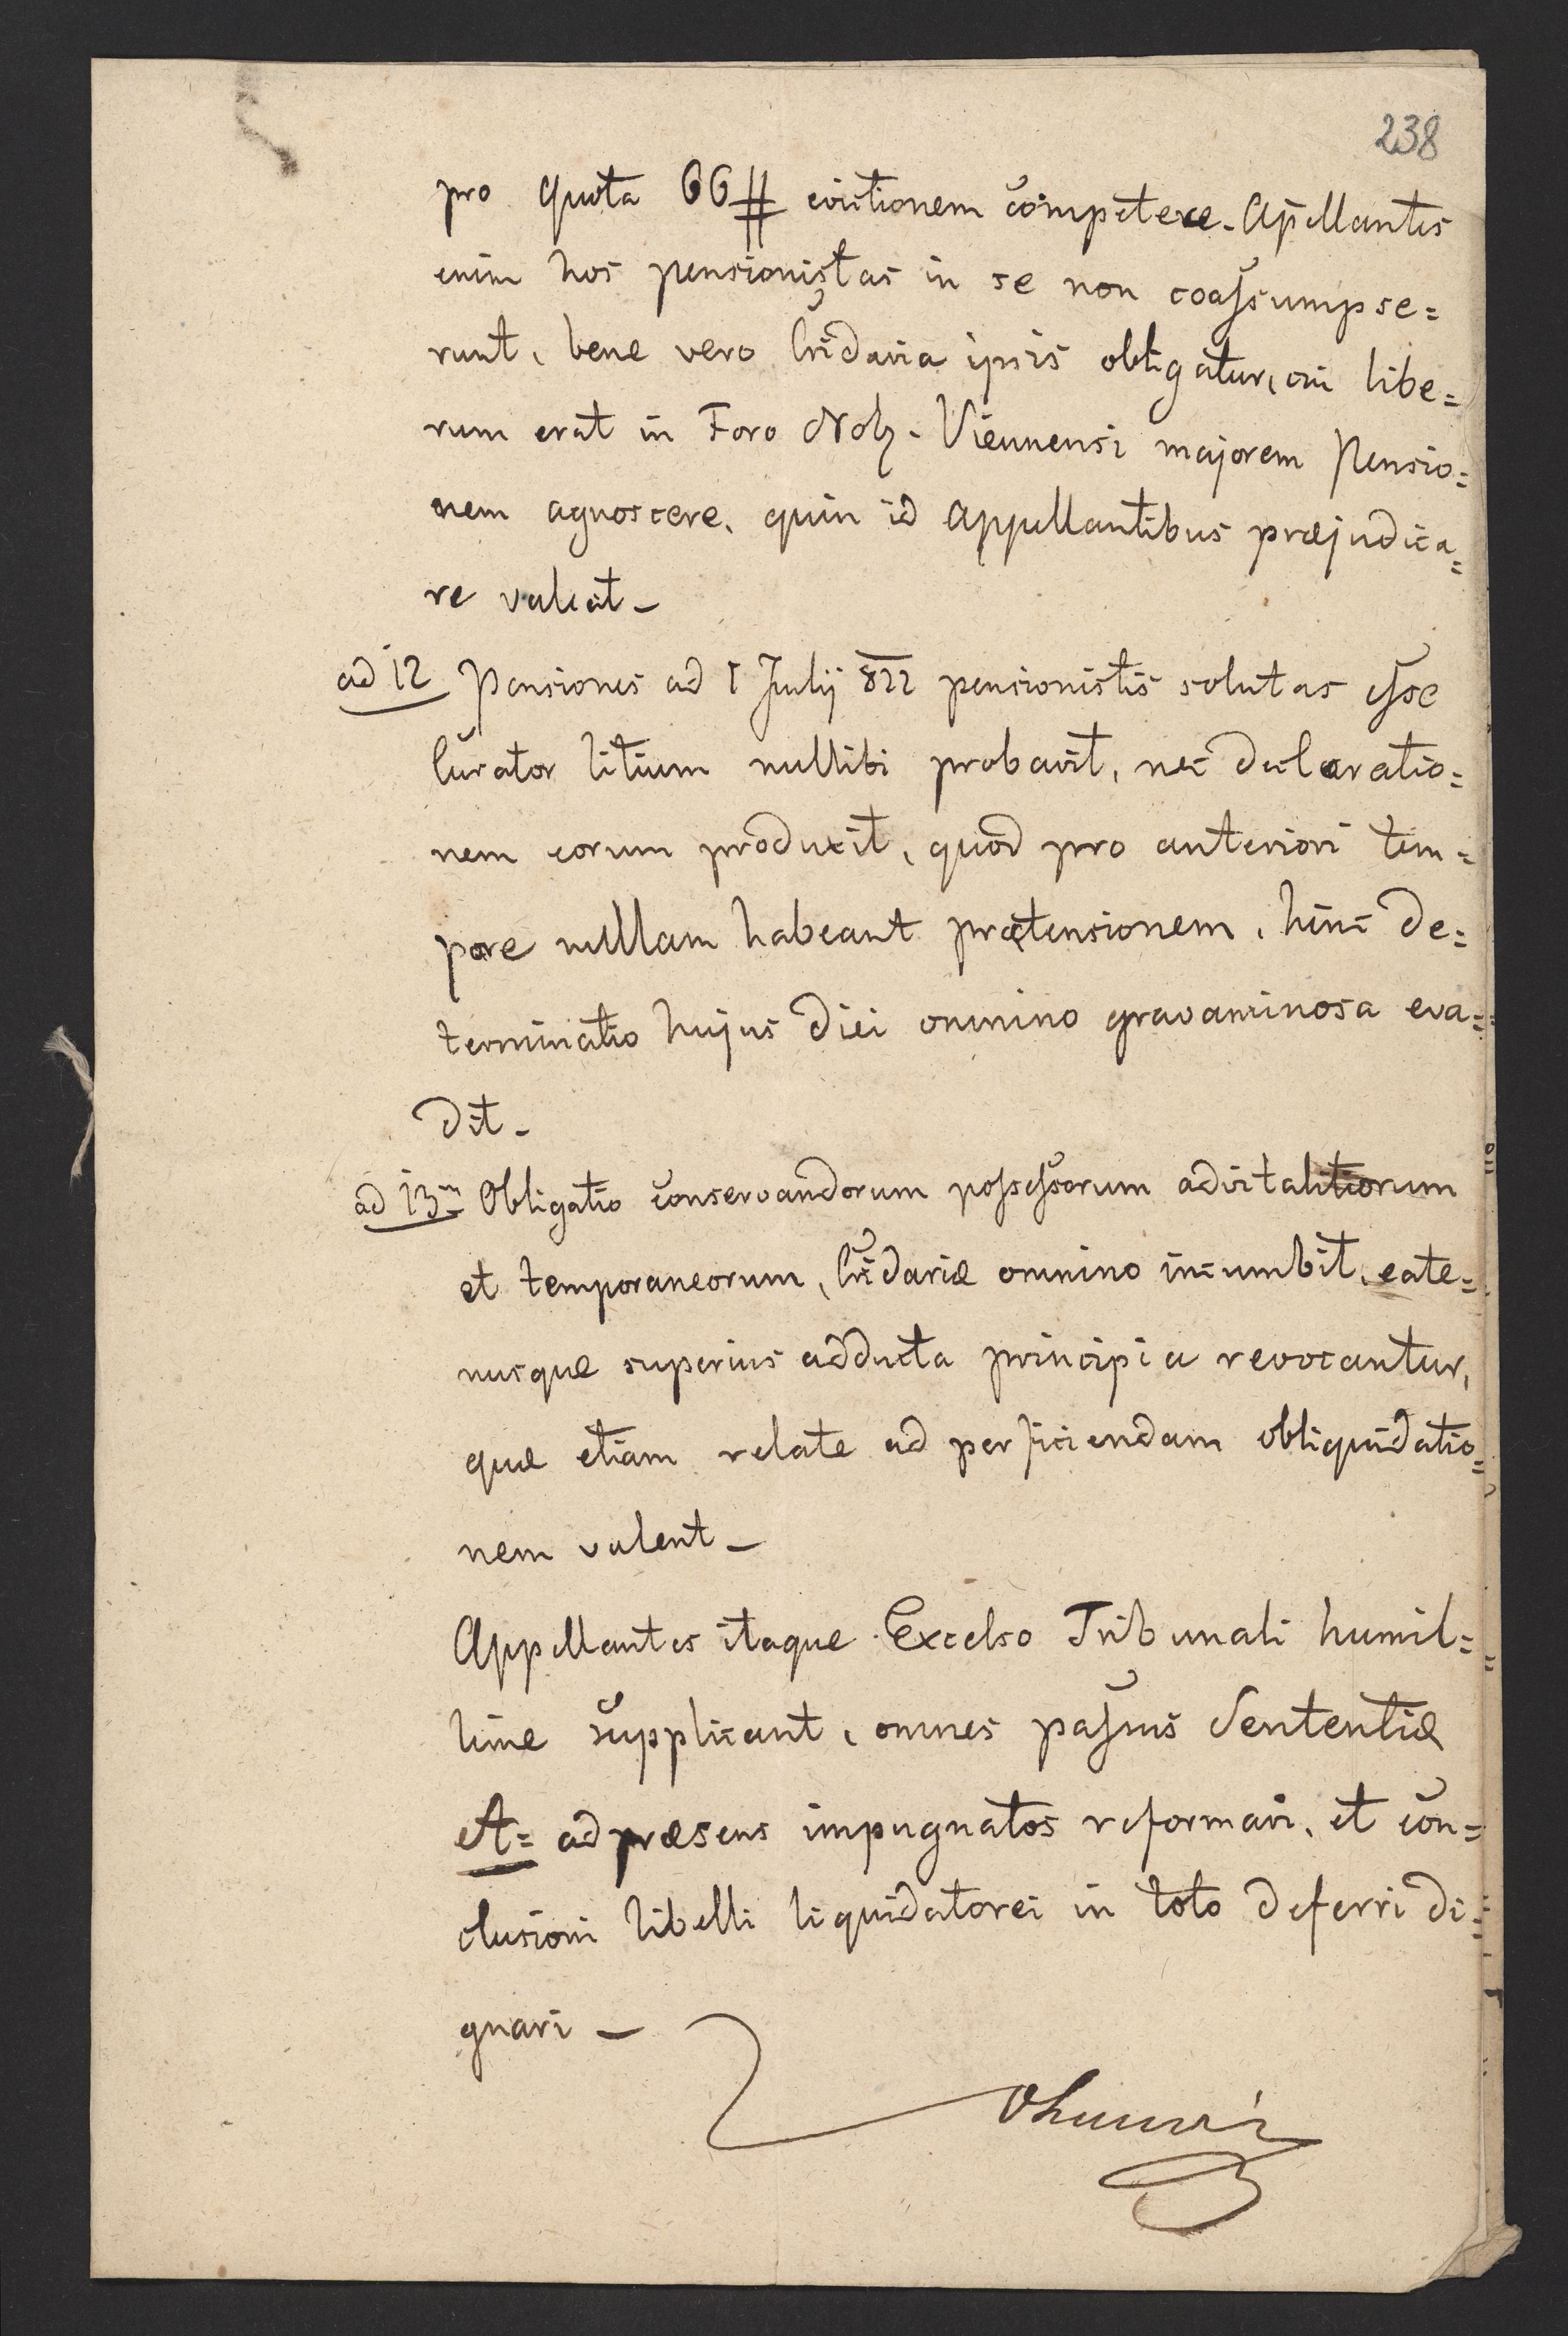 238
pro quota 66# evictionem competere. Apellantes
enim hos pensionistas in se non coassumpse=
runt, bene vero Cridaria ipsis obligatur, cui libe=
rum erat in Foro Nob. Viennensi majorem Pensio=
nem agnoscere, quin id Appellantibus præjudica=
re valeat_
ad 12 Pensiones ad 1 Julij 822 pensionistis solutas esse
Curator litium nullibi probavit, nec declaratio=
nem eorum produxit, quod pro anteriori tem=
pore nullam habeant prætensionem, hinc de=
terminatio hujus diei omnino gravaminosa eva=
dit_
ad 13m Obligatio conservandorum possessorum advitalitiorum
et temporaneorum, Cridariæ omnino incumbit, eate=
nusque superius adducta principia revocantur,
quæ etiam relate ad perficiendam obliquidatio=
nem valent_
Appellantes itaque Excelso Tribunali humil=
lime supplicant, omnes passus Sententiæ
A= ad præsens impugnatos reformari, et con=
clusioni libelli liquidatorei in toto deferri di=
gnari_